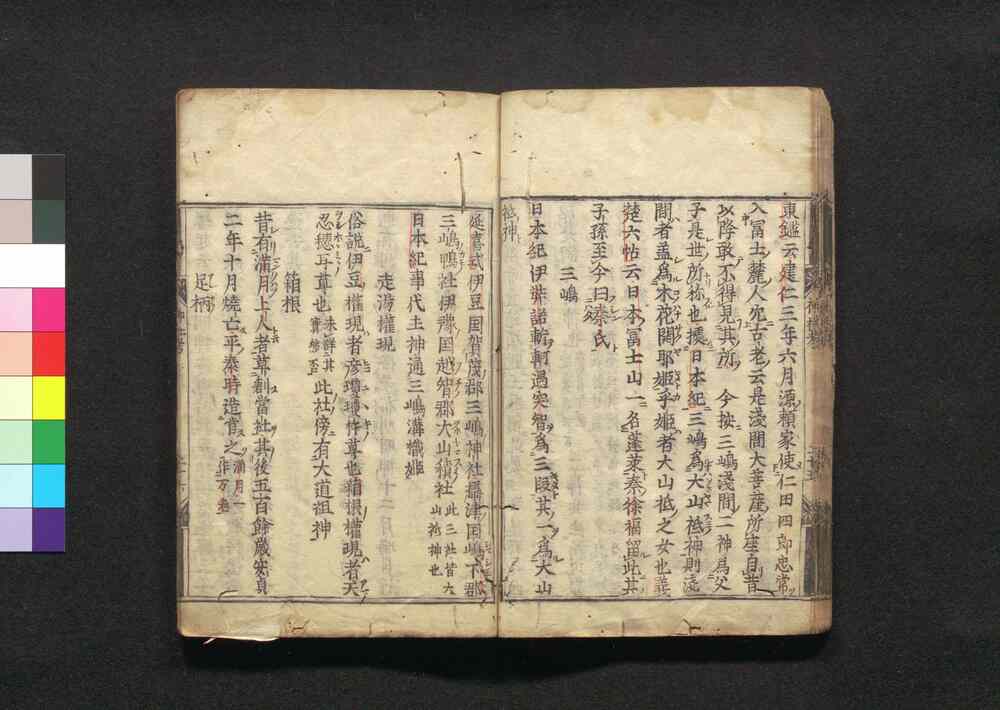 東鑑云建仁三年六月源頼家使仁田四郎忠常
入冨士麓人穴古老云是淺間大菩薩所座自昔
以降敢不得見其所 今按三嶋淺間二神爲父
子是世所称也據日本紀三嶋爲大山祇神則淺
間者蓋爲木花開耶姬乎姬者大山祇之女也義
楚六帖云日本冨士山一名蓬萊秦徐福留此其
子孫至今曰秦氏
三嶋
日本紀伊弉諾斬軻遇突智爲三段其一爲大山
祇神
延喜式伊豆国賀茂郡三嶋神社攝津国嶋下郡
三嶋鴨社伊豫国越智郡大山積社 此三社皆大山祇神也
日本紀事代主神通三嶋溝樴姬
走湯權現
俗説伊豆權現者彦瓊瓊杵尊也箱根權現者天
忍穂耳尊也 未詳其實孰否 此社傍有大道祖神
箱根
昔有滿月上人者草創當社其後五百餘歳安貞
二年十月燒亡平泰時造營之 滿月一作万巻
足柄